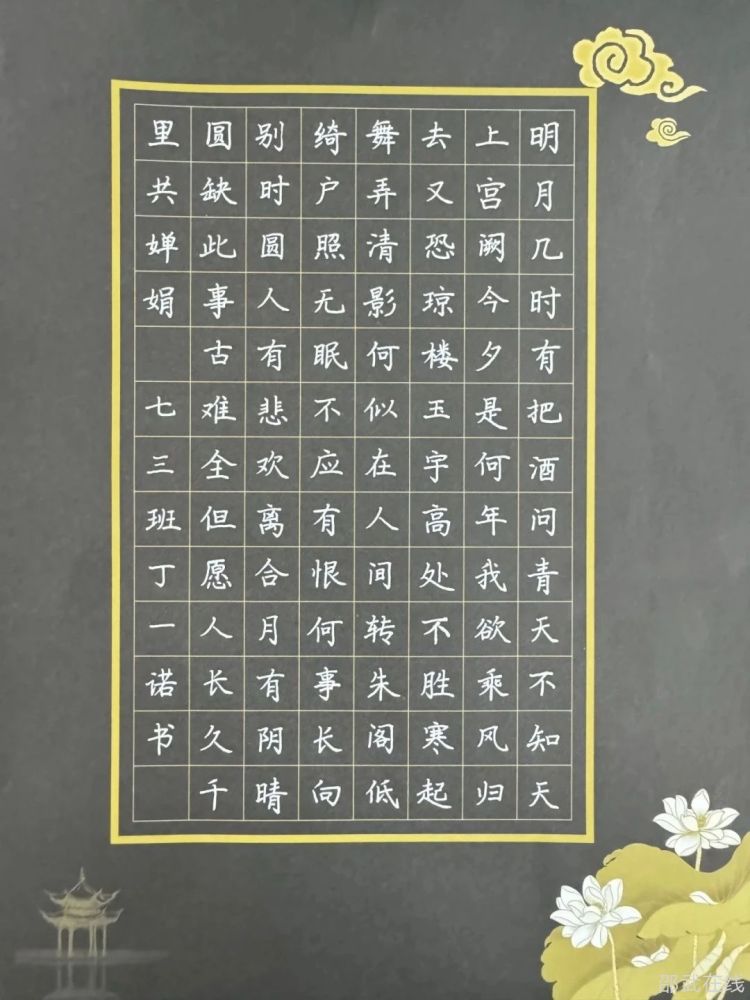 明月几时有把酒问青天不知天
上宫阙今夕是何年我欲乘风归
去又恐琼楼玉宇高处不胜寒起
舞弄清影何似在人间转朱阁低
绮户照无眠不应有恨何事长向
别时圆人有悲欢离合月有阴晴
圆缺此事古难全但愿人长久千
里共婵娟 七三班丁一诺书
邵武在线